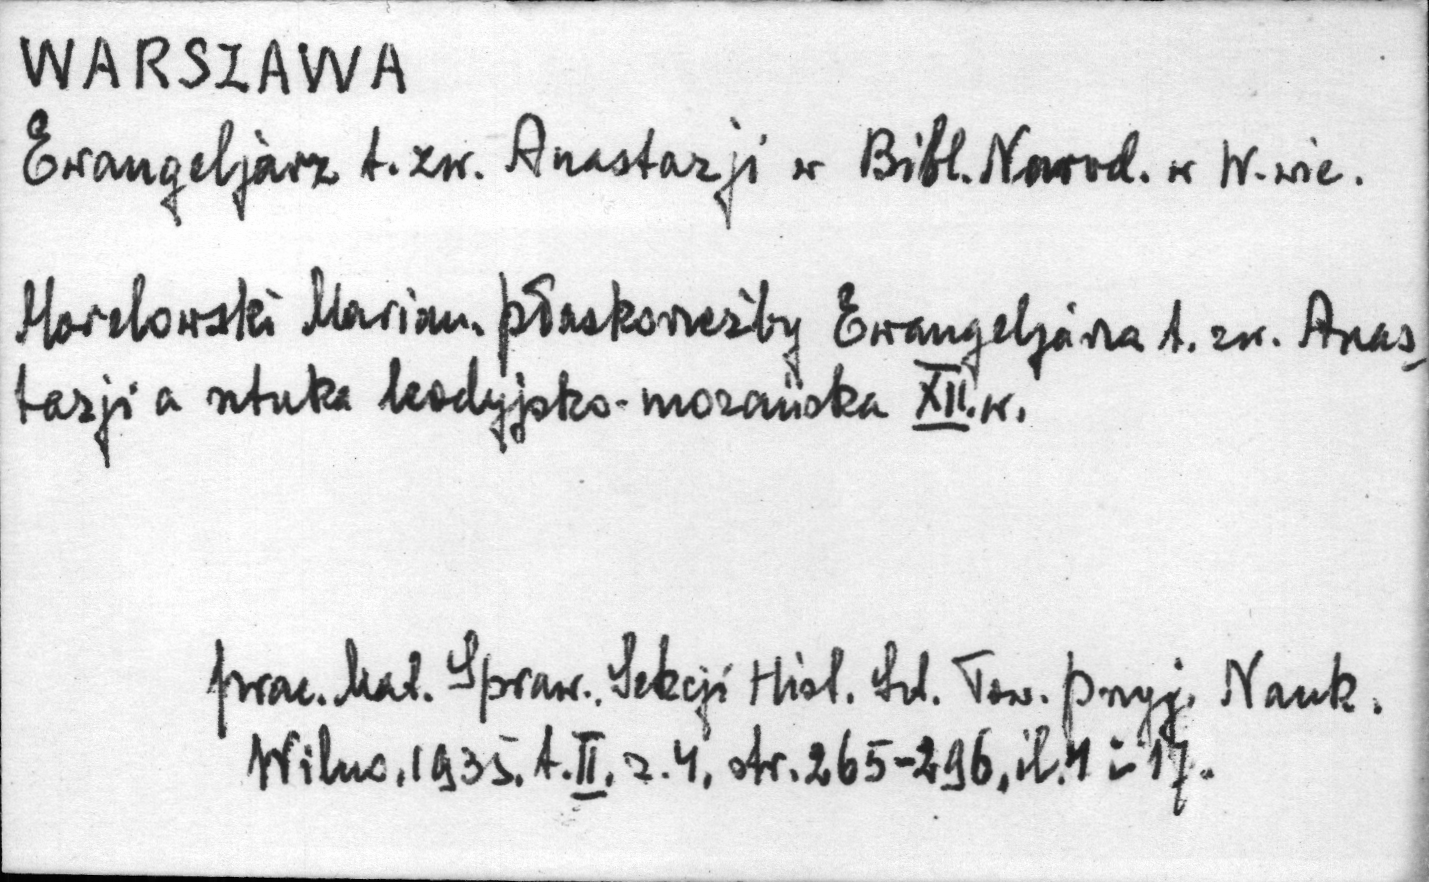 WARSZAWA
Ewangeljarz t. zw. Anastazji w Bibl. Narod. w W-wie.
Morelowski Marian. płaskorzeźby Ewangeljarza t. zw. Anas-
tazji a sztuka leodyjsko-mozańska XII. w.
prac. Mat. Spraw. Sekcji Hist. Szt. Tow. przyj. Nauk.
Wilno, 1935, t. II, z. 4, str. 265-296, il. 1 i 17.